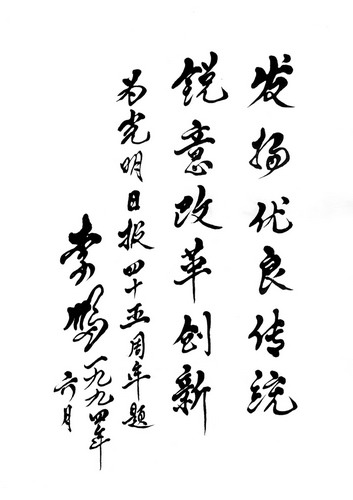 发扬优良传统
锐意改革创新
为光明日报四十五周年题
李鹏
一九九四年
六月